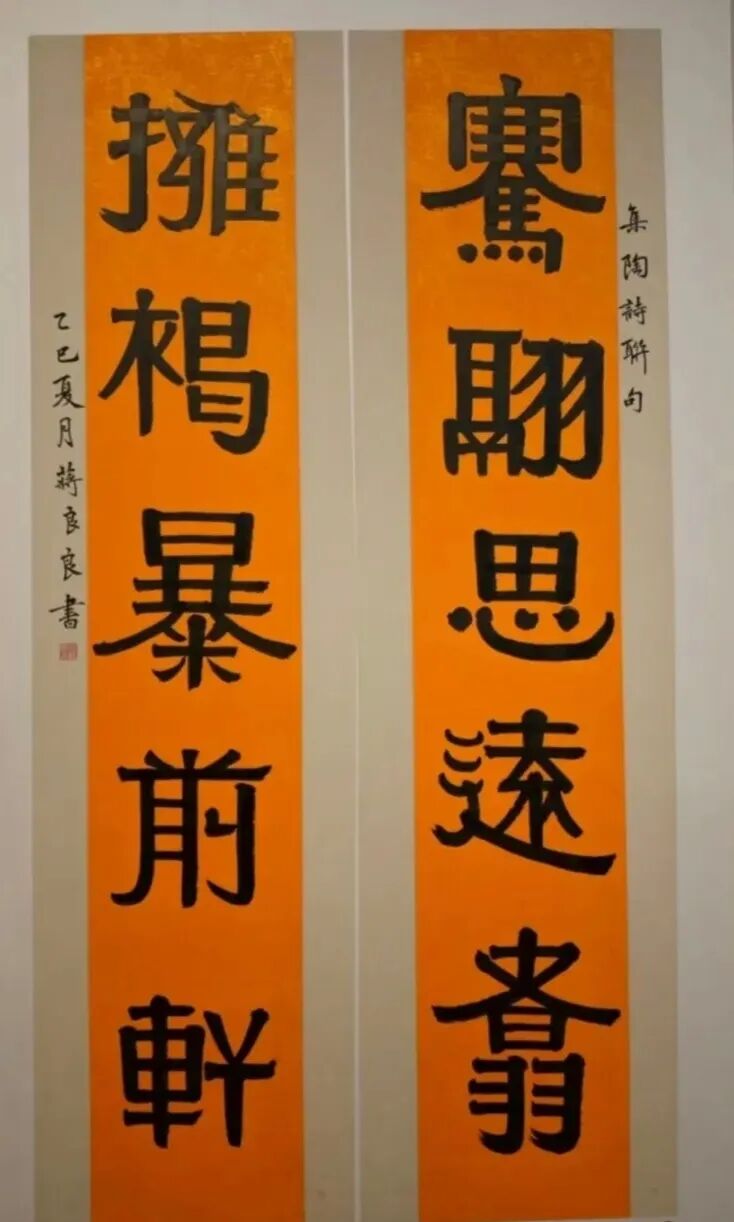 集陶詩聯句
騫翮思遠翥
擁褐暴前軒
乙巳夏月蔣良良書